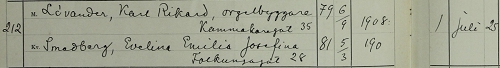 M. Lövander, Karl Rikard, orgelbyggare 79 6/9 1908 1 juli 25
212 Kammakaregat 35
Kv. Smedberg, Evelina Emilia Josefina 81 5/3 190
Folkungagat 28